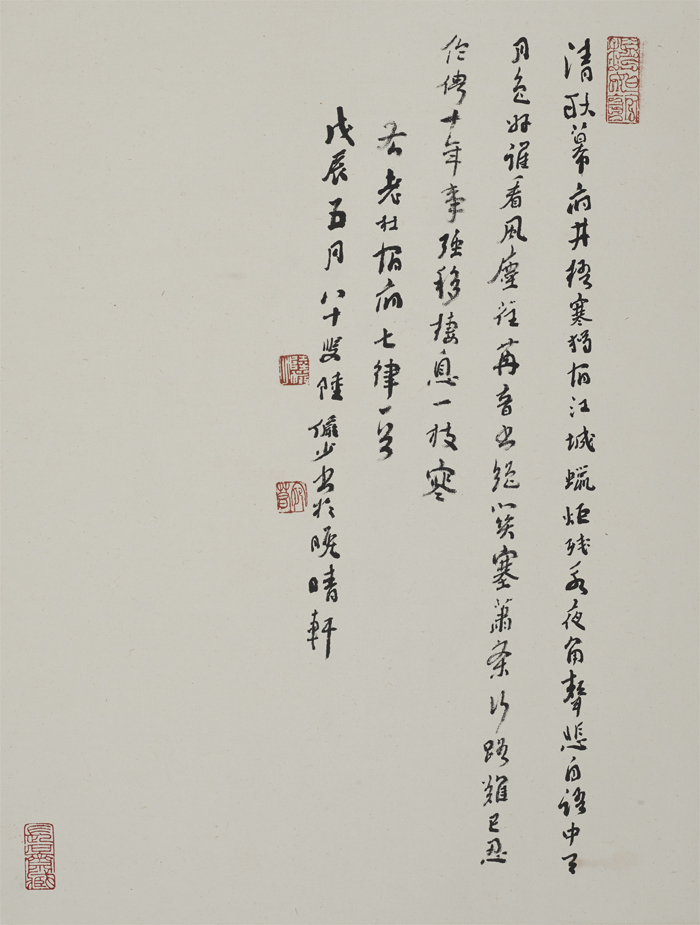 清秋幕府井梧寒獨宿江城蠟炬殘永夜角聲悲自語中天
月色好誰看風塵荏苒音書絕關塞蕭條行路難已忍
伶俜十年事強移棲息一枝寒
右老杜宿府七律一首
戊辰五月八十叟陸儼少書於晚晴軒